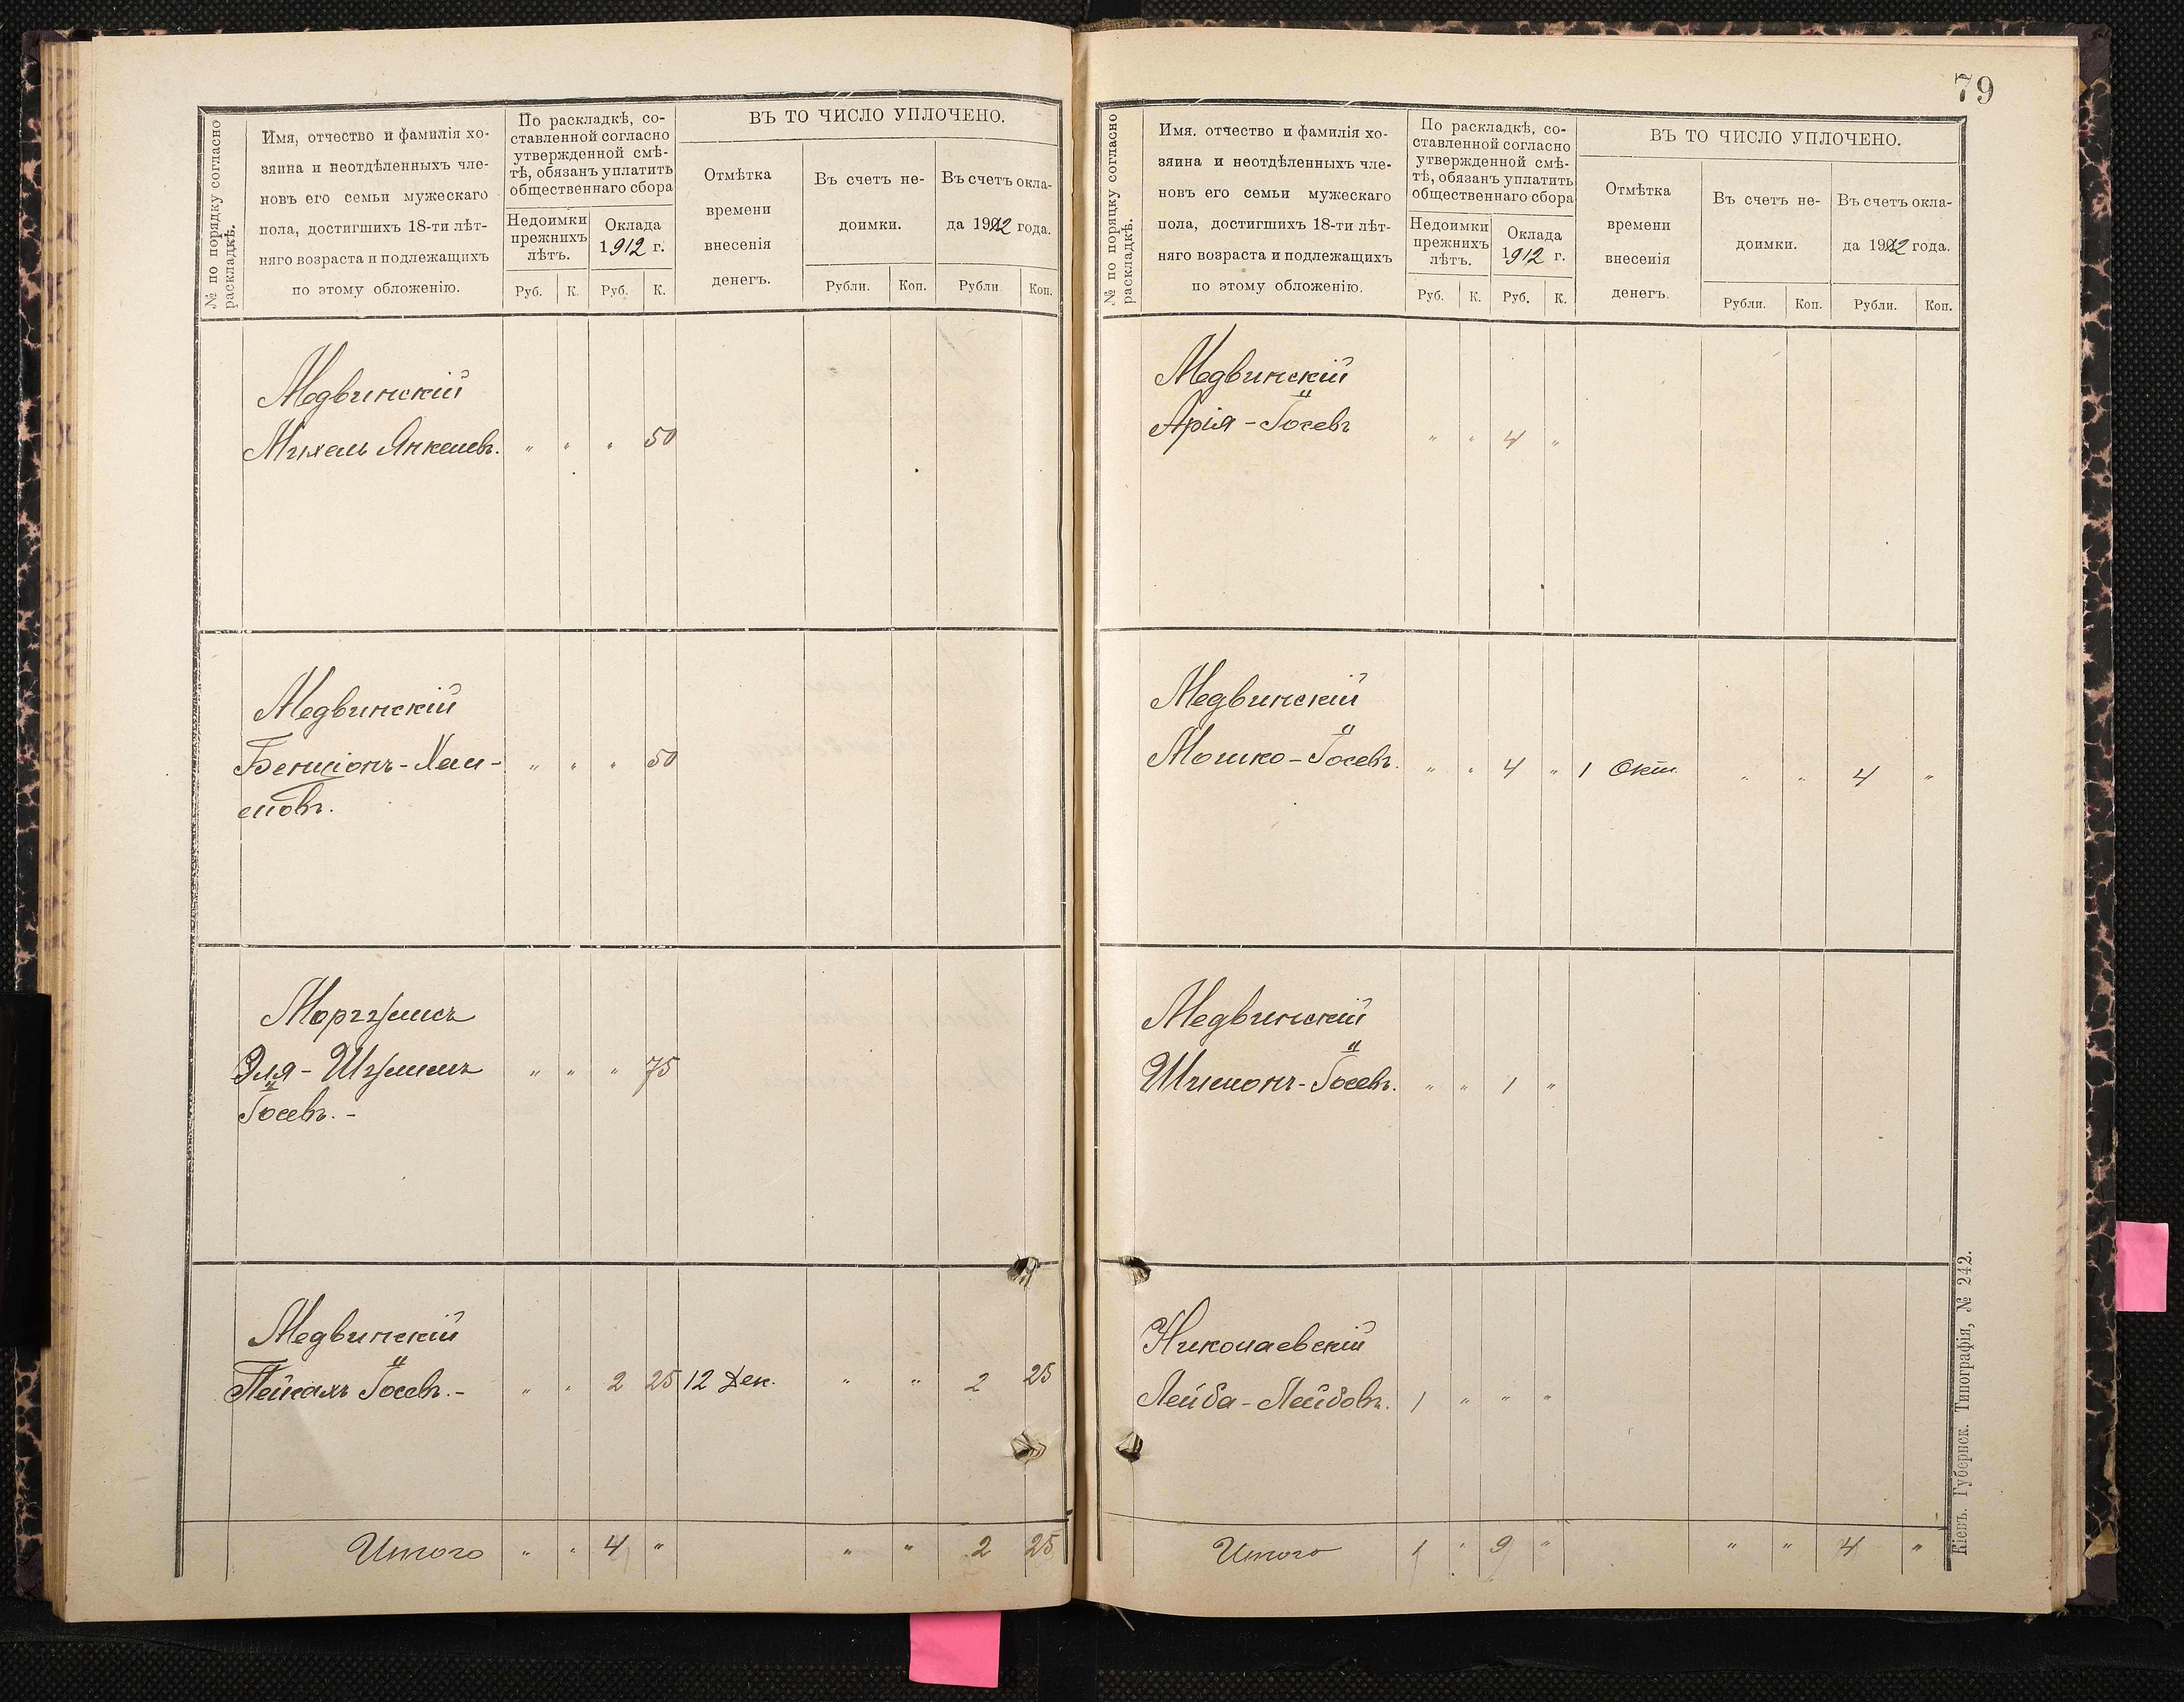 № по порядку согласно
раскладкѣ.
Имя, отчество и фамилія хо-
зяина и неотдѣленныхъ чле-
новъ его семьи мужескаго
пола, достигшихъ 18-ти лѣт-
няго возраста и подлежащихъ
по этому обложенію.
По раскладкѣ, со-
ставленной согласно
утвержденной смѣ-
тѣ, обязанъ уплатить
общественнаго сбора
Недоимки
прежнихъ
лѣтъ.
Оклада
1912 г.
Руб. К. Руб. К.
ВЪ ТО ЧИСЛО УПЛОЧЕНО.
Отмѣтка
времени
внесенія
денегъ.
Въ счетъ не-
доимки.
Рубли. Коп.
Въ счетъ окла-
да 1912 года.
Рубли Коп.
Медвинскій
Михель Янкелевъ. " " " 50
Медвинскій
Бенціонъ-Хаи- " " " 50
мовъ.
Моргулисъ
Эля-Шулимъ " " " 75
Іосевъ.-
Медвинскій
Пейсахъ Іосевъ.- " " 2 25 12 Дек. " " 2 25
Итого " " 4 " " " 2 25
79
№ по порядку согласно
раскладкѣ.
Имя. отчество и фамилія хо-
зяина и неотдѣленныхъ чле-
новъ его семьи мужескаго
пола, достигшихъ 18-ти лѣт-
няго возраста и подлежащихъ
по этому обложенію.
По раскладкѣ, со-
ставленной согласно
утвержденной смѣ-
тѣ, обязанъ уплатить
общественнаго сбора
Недоимки
прежнихъ
лѣтъ.
Оклада
1912 г.
Руб. К. Руб. К.
ВЪ ТО ЧИСЛО УПЛОЧЕНО.
Отмѣтка
времени
внесенія
денегъ.
Въ счетъ не-
доимки.
Рубли. Коп.
Въ счетъ окла-
да 1912 года.
Рубли. Коп.
Медвинскій
Арія-Іосевъ " " 4 "
Медвинскій
Мошко-Іосевъ. " " 4 " 1 Окт. " " 4 "
Медвинскій
Шимонъ-Іосевъ. " " 1 "
Николаевскій
Лейба-Лейбовъ. 1 " " "
Итого 1 " 9 " " " 4 "
Кіевъ. Губернск. Типографія, № 242.